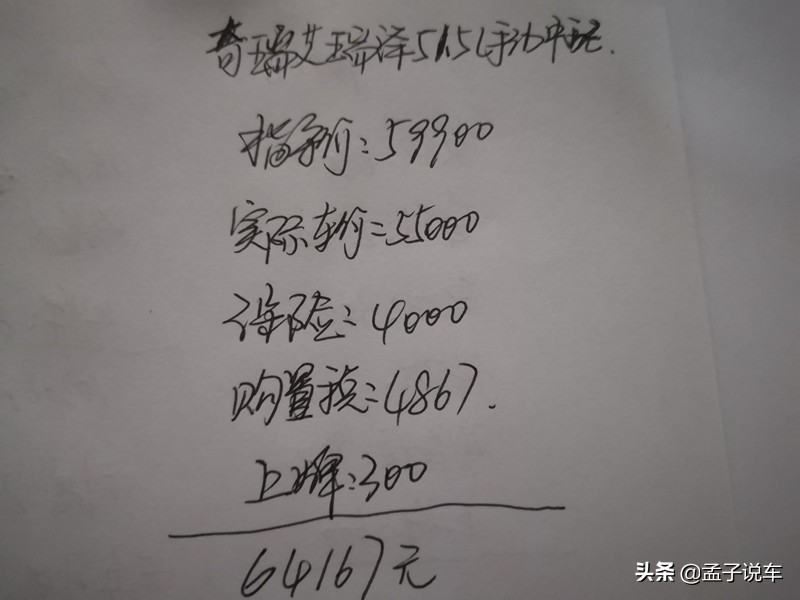 奇瑞艾瑞泽5 1.5L手动中配.
指导价:59900
实际车价:55000
保险:4000
购置税:4867.
上牌:300
64167元
头条 @孟子说车